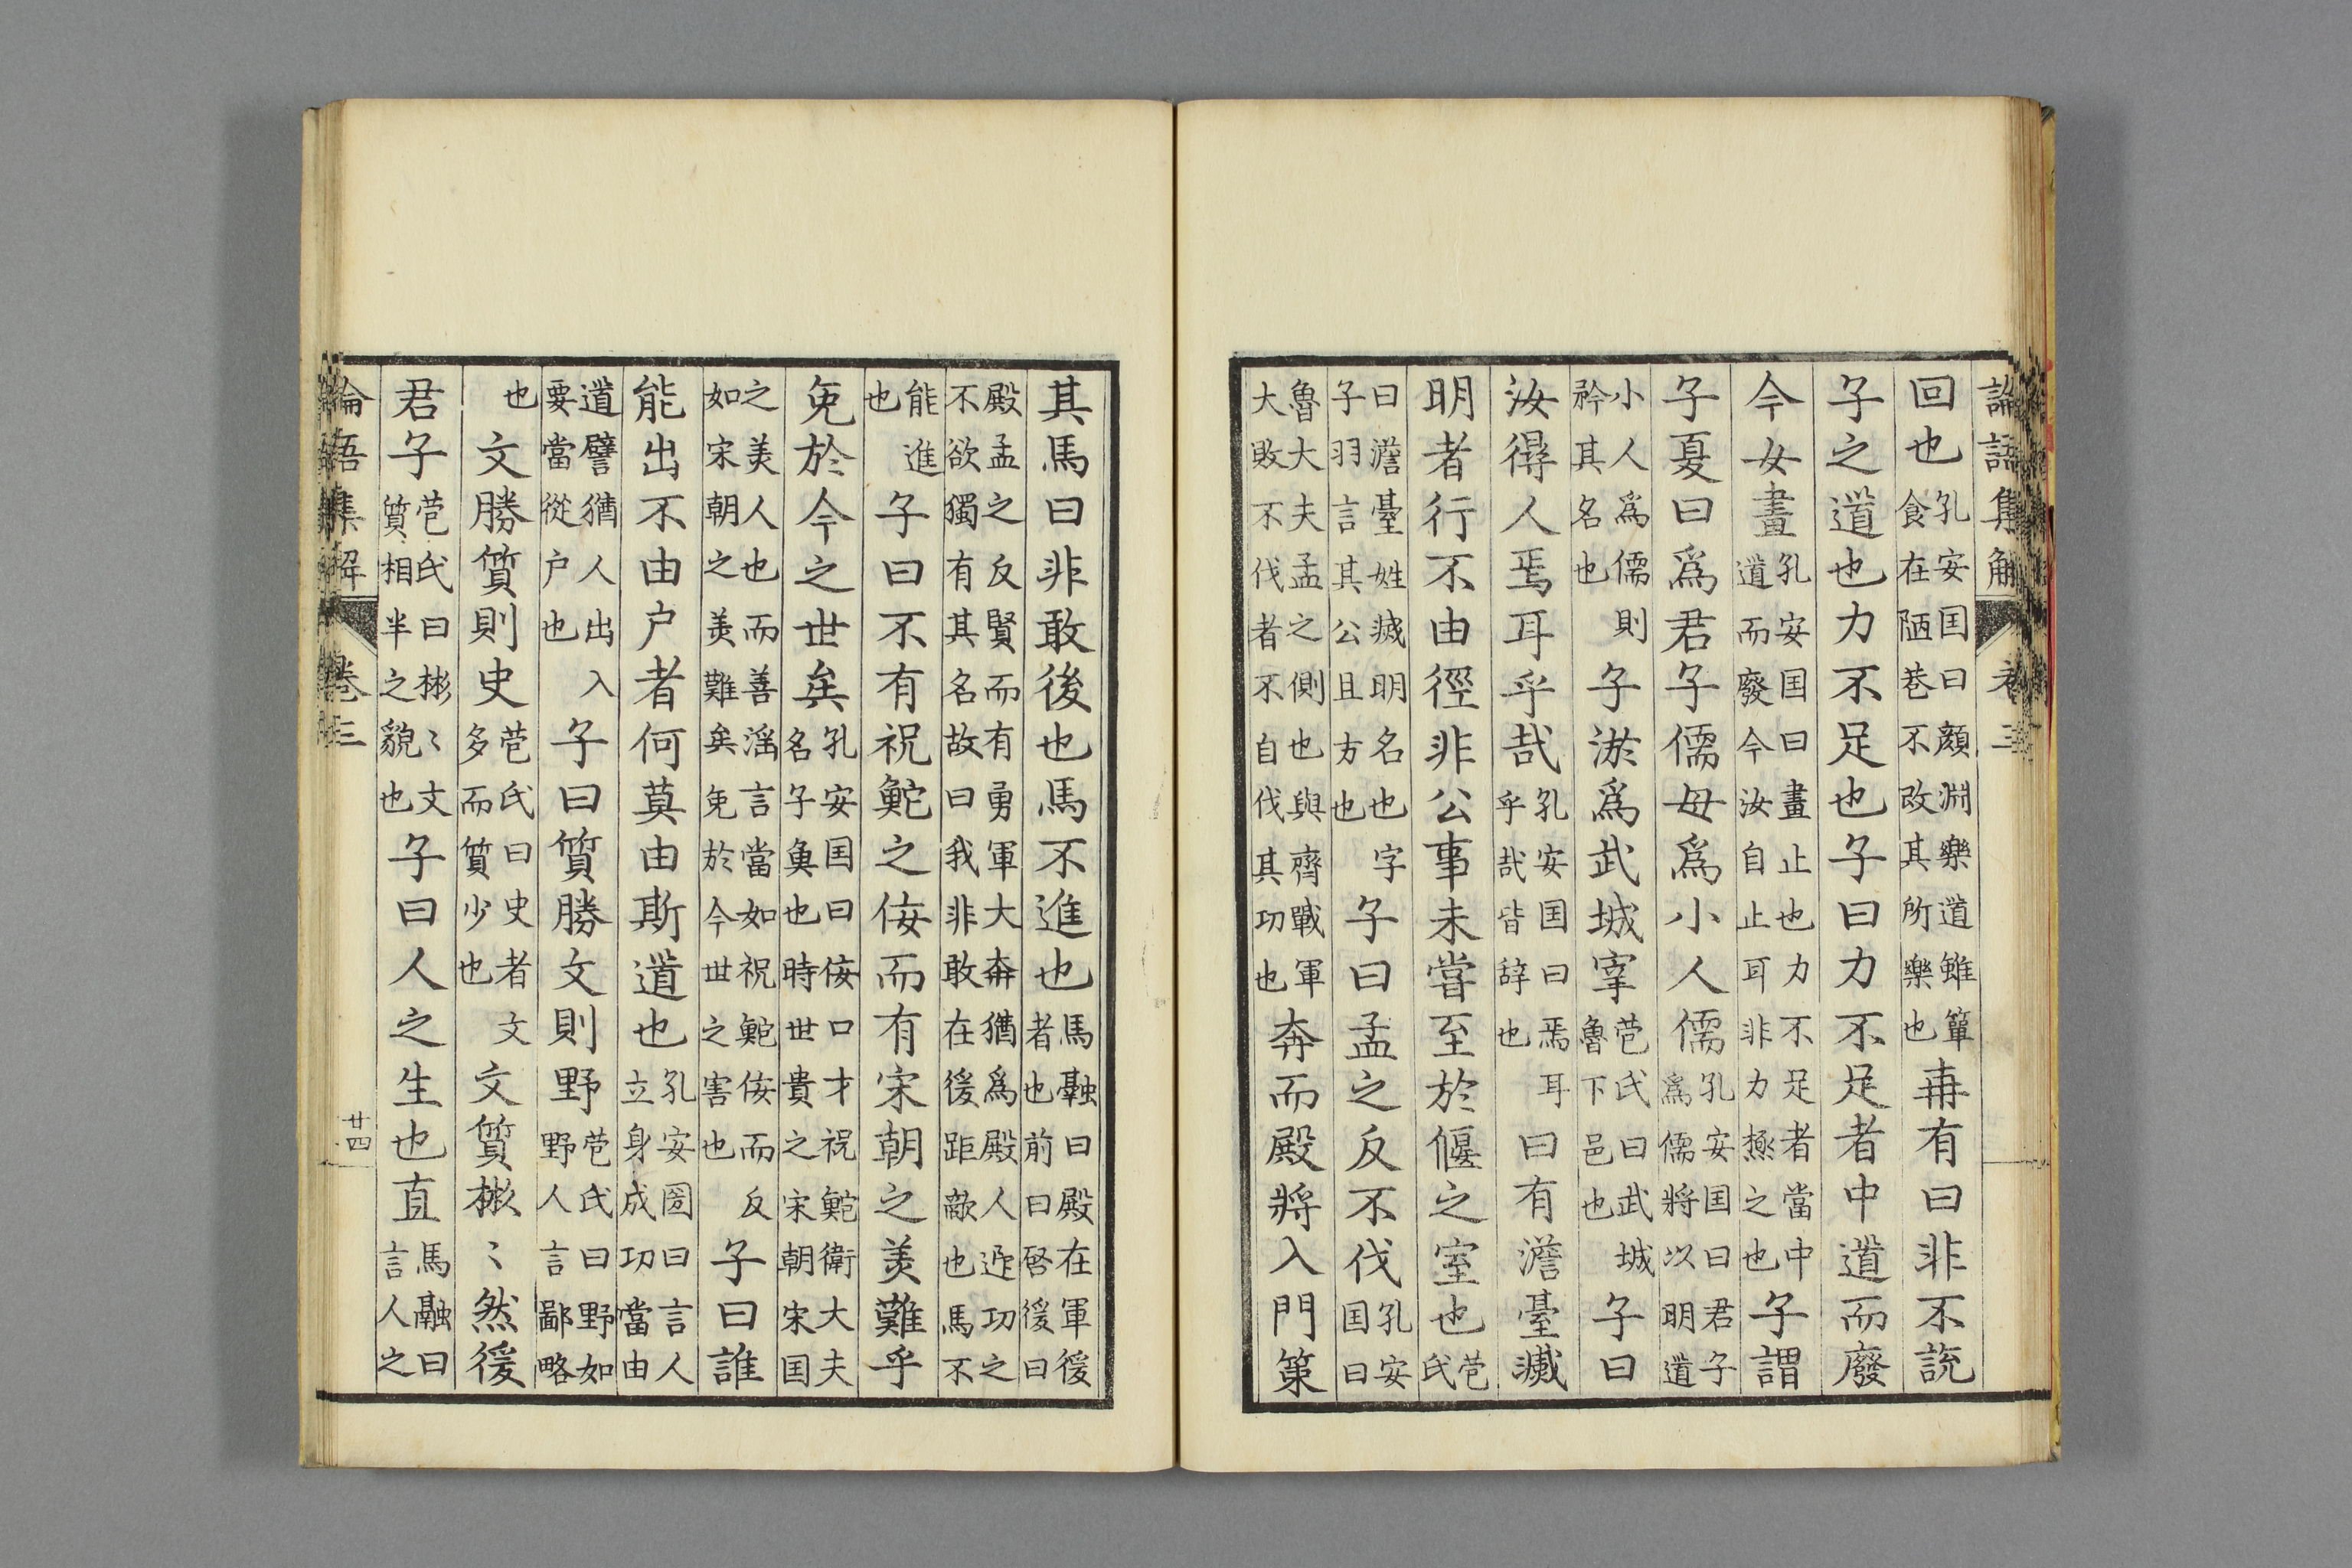 論語集解 卷三
回也孔安囯曰顔淵樂道雖簞食在陋巷不改其所樂也冉有曰非不說
子之道也力不足也子曰力不足者中道而廢
今女畫孔安囯曰畫止也力不足者當中道而廢今汝自止耳非力極之也子謂
子夏曰爲君子儒毋爲小人儒孔安囯曰君子爲儒將以明道
小人爲儒則矜其名也子游爲武城宰苞氏曰武城魯下邑也子曰
汝得人焉耳乎哉孔安囯曰焉耳乎哉皆辞也曰有澹臺滅
明者行不由徑非公事未甞至於偃之室也苞氏
曰澹臺姓滅明名也字子羽言其公且方也子曰孟之反不伐孔安囯曰
魯大夫孟之側也與齊戰軍大敗不伐者不自伐其功也奔而殿將入門策
其馬曰非敢後也馬不進也馬融曰殿在軍後者也前曰啓後曰
殿孟之反賢而有勇軍大奔猶爲殿人迎功之不欲獨有其名故曰我非敢在後距敵也馬不
能進也子曰不有祝鮀之佞而有宋朝之美難乎
免於今之世矣孔安囯曰佞口才祝鮀衛大夫名子魚也時世貴之宋朝宋囯
之美人也而善淫言當如祝鮀佞而反如宋朝之美難矣免於今世之害也子曰誰
能出不由户者何莫由斯道也孔安圀曰言人立身成功當由
道譬猶人出入要當從户也子曰質勝文則野苞氏曰野如野人言鄙略
也文勝質則史苞氏曰史者文多而質少也文質彬〻然後
君子苞氏曰彬〻文質相半之貌也子曰人之生也直馬融曰言人之
論語集解 卷三 廿四